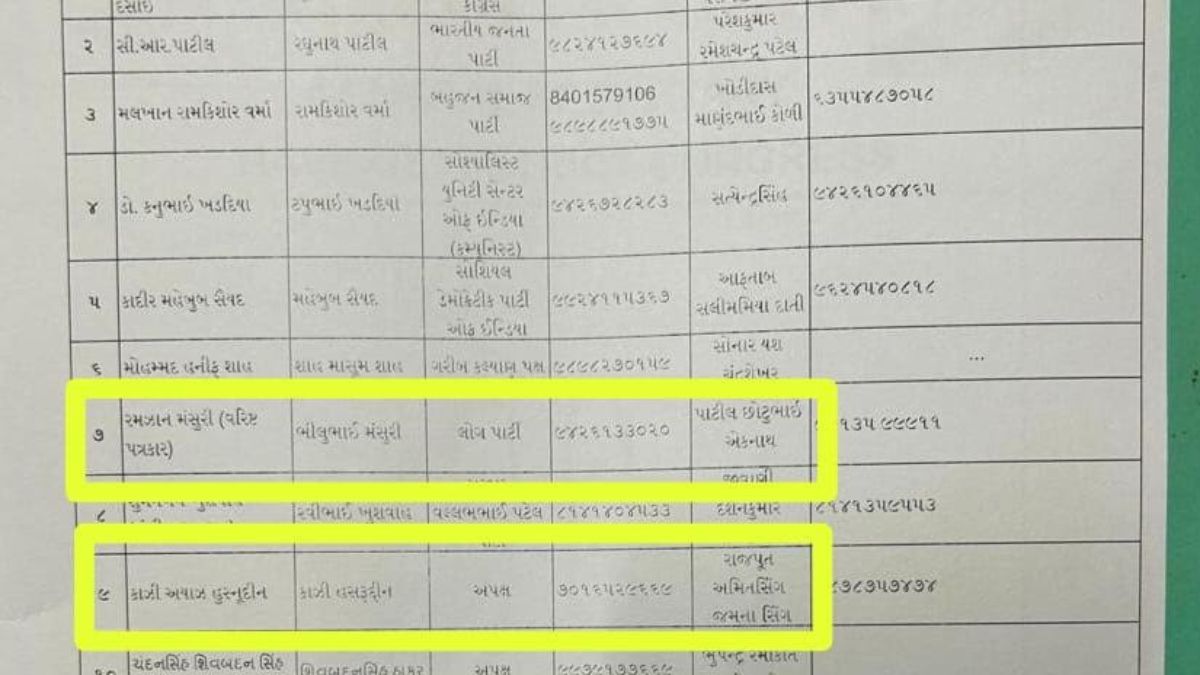 દેસાઈ
કોંગ્રેસ
૨
સી.આર.પાટીલ
રઘુનાથ પાટીલ
ભારતીય જનતા
પાર્ટી
૯૮૨૪૧૨૭૬૯૪
પરેશકુમાર
રમેશચન્દ્ર પટેલ
૩
મલખાન રામકિશોર વર્મા
રામકિશોર વર્મા
બહુજન સમાજ
પાર્ટી
8401579106
૯૮૯૮૮૯૧૭૭૫
ખોડીદાસ
માણંદભાઈ કોળી
૬૩૫૫૪૮૭૦૫૮
૪
ડો. કનુભાઈ ખડદિયા
ટપુભાઈ ખડદિયા
સોશ્યાલિસ્ટ
યુનિટી સેન્ટર
ઓફ ઈન્ડિયા
(કમ્યુનિસ્ટ)
૯૪૨૬૭૨૮૨૮૩
સત્યેન્દ્રસિંહ
૯૪૨૬૧૦૪૪૬૫
૫
કાદીર મહેબુબ સૈયદ
મહેબુબ સૈયદ
સોશિયલ
ડેમોક્રેટીક પાર્ટી
ઓફ ઈન્ડિયા
૯૯૨૪૧૧૫૩૬૭
આફતાબ
સલીમમિયા દાતી
૯૬૨૪૫૪૦૮૧૮
૬
મોહમ્મદ હનીફ શાહ
શાહ માસૂમ શાહ
ગરીબ કલ્યાણ પક્ષ
૯૮૯૮૨૩૦૧૫૯
સોનાર યશ
ચંદ્રશેખર
...
૭
રમઝાન મંસુરી (વરિષ્ટ
પત્રકાર)
ભીલુભાઈ મંસુરી
લોગ પાર્ટી
૯૪૨૬૧૩૩૦૨૦
પાટીલ છોટુભાઈ
એકનાથ
૧૩૫૯૯૯૧૧
૮
રવીભાઈ ખુશવાહ
વલ્લભભાઈ પટેલ
૮૧૪૧૪૦૪૫૩૩
જીવાણી
દર્શનકુમાર
૮૧૪૧૩૫૯૫૫૩
૯
કાઝી અયાઝ હુસ્નૂદીન
કાઝી હસરૂદ્દીન
અપક્ષ
૭૦૧૬૫૨૯૬૬૯
રાજપૂત
અમિતસિંગ
જમના સિંગ
૭૮૭૫૭૪૭૪
૧૦
ચંદનસિંહ શિવબદન સિંહ
શિવબદનસિંહ ઠાકુર
અપક્ષ
૯૯૭૯૧૭૩૬૬૯
ભુપેન્દ્ર રમાકાંત